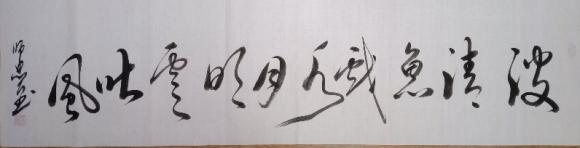 波清魚戲水月明雲吐風